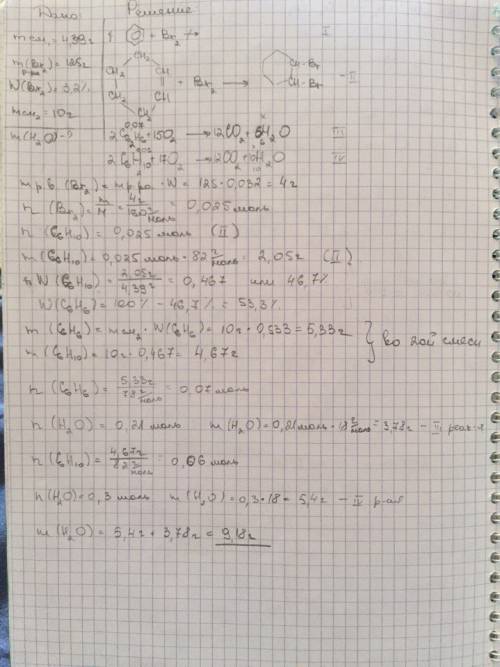 Дано Решение
m см₁ = 4,39г + Br₂ ↛ I
m(Br₂) = 125г
р-ра
W(Br₂) = 3,2% + Br₂ → CH-Br CH-Br - II
CH₂ CH₂ CH₂ CH₂ CH CH
m см₂ = 10г
m(H₂O) - ?
0,07 x
2C₆H₆ + 15O₂ → 12CO₂ + 6H₂O III
2C₆H₁₀ + 17O₂ → 12CO₂ + 10H₂O IV
m р.в. (Br₂) = m р.ра · W = 125 · 0,032 = 4г
n (Br₂) = m/M = 4г / 160 г/моль = 0,025 моль
n (C₆H₁₀) = 0,025 моль (II)
m(C₆H₁₀) = 0,025 моль · 82 г/моль = 2,05г (II)
W (C₆H₁₀) = 2,05г / 4,39г = 0,467 или 46,7%
W(C₆H₆) = 100% - 46,7% = 53,3%
m (C₆H₆) = m см₂ · W(C₆H₆) = 10г · 0,533 = 5,33г } во 2ой смеси
m (C₆H₁₀) = 10г · 0,467 = 4,67г
n (C₆H₆) = 5,33г / 78 г/моль = 0,07 моль
n (H₂O) = 0,21 моль m(H₂O) = 0,21 моль · 18 г/моль = 3,78г - III реак-я
n (C₆H₁₀) = 4,67г / 82 г/моль = 0,06 моль
n(H₂O) = 0,3 моль m(H₂O) = 0,3 · 18 = 5,4г - IV р-ая
m (H₂O) = 5,4г + 3,78г = 9,18г